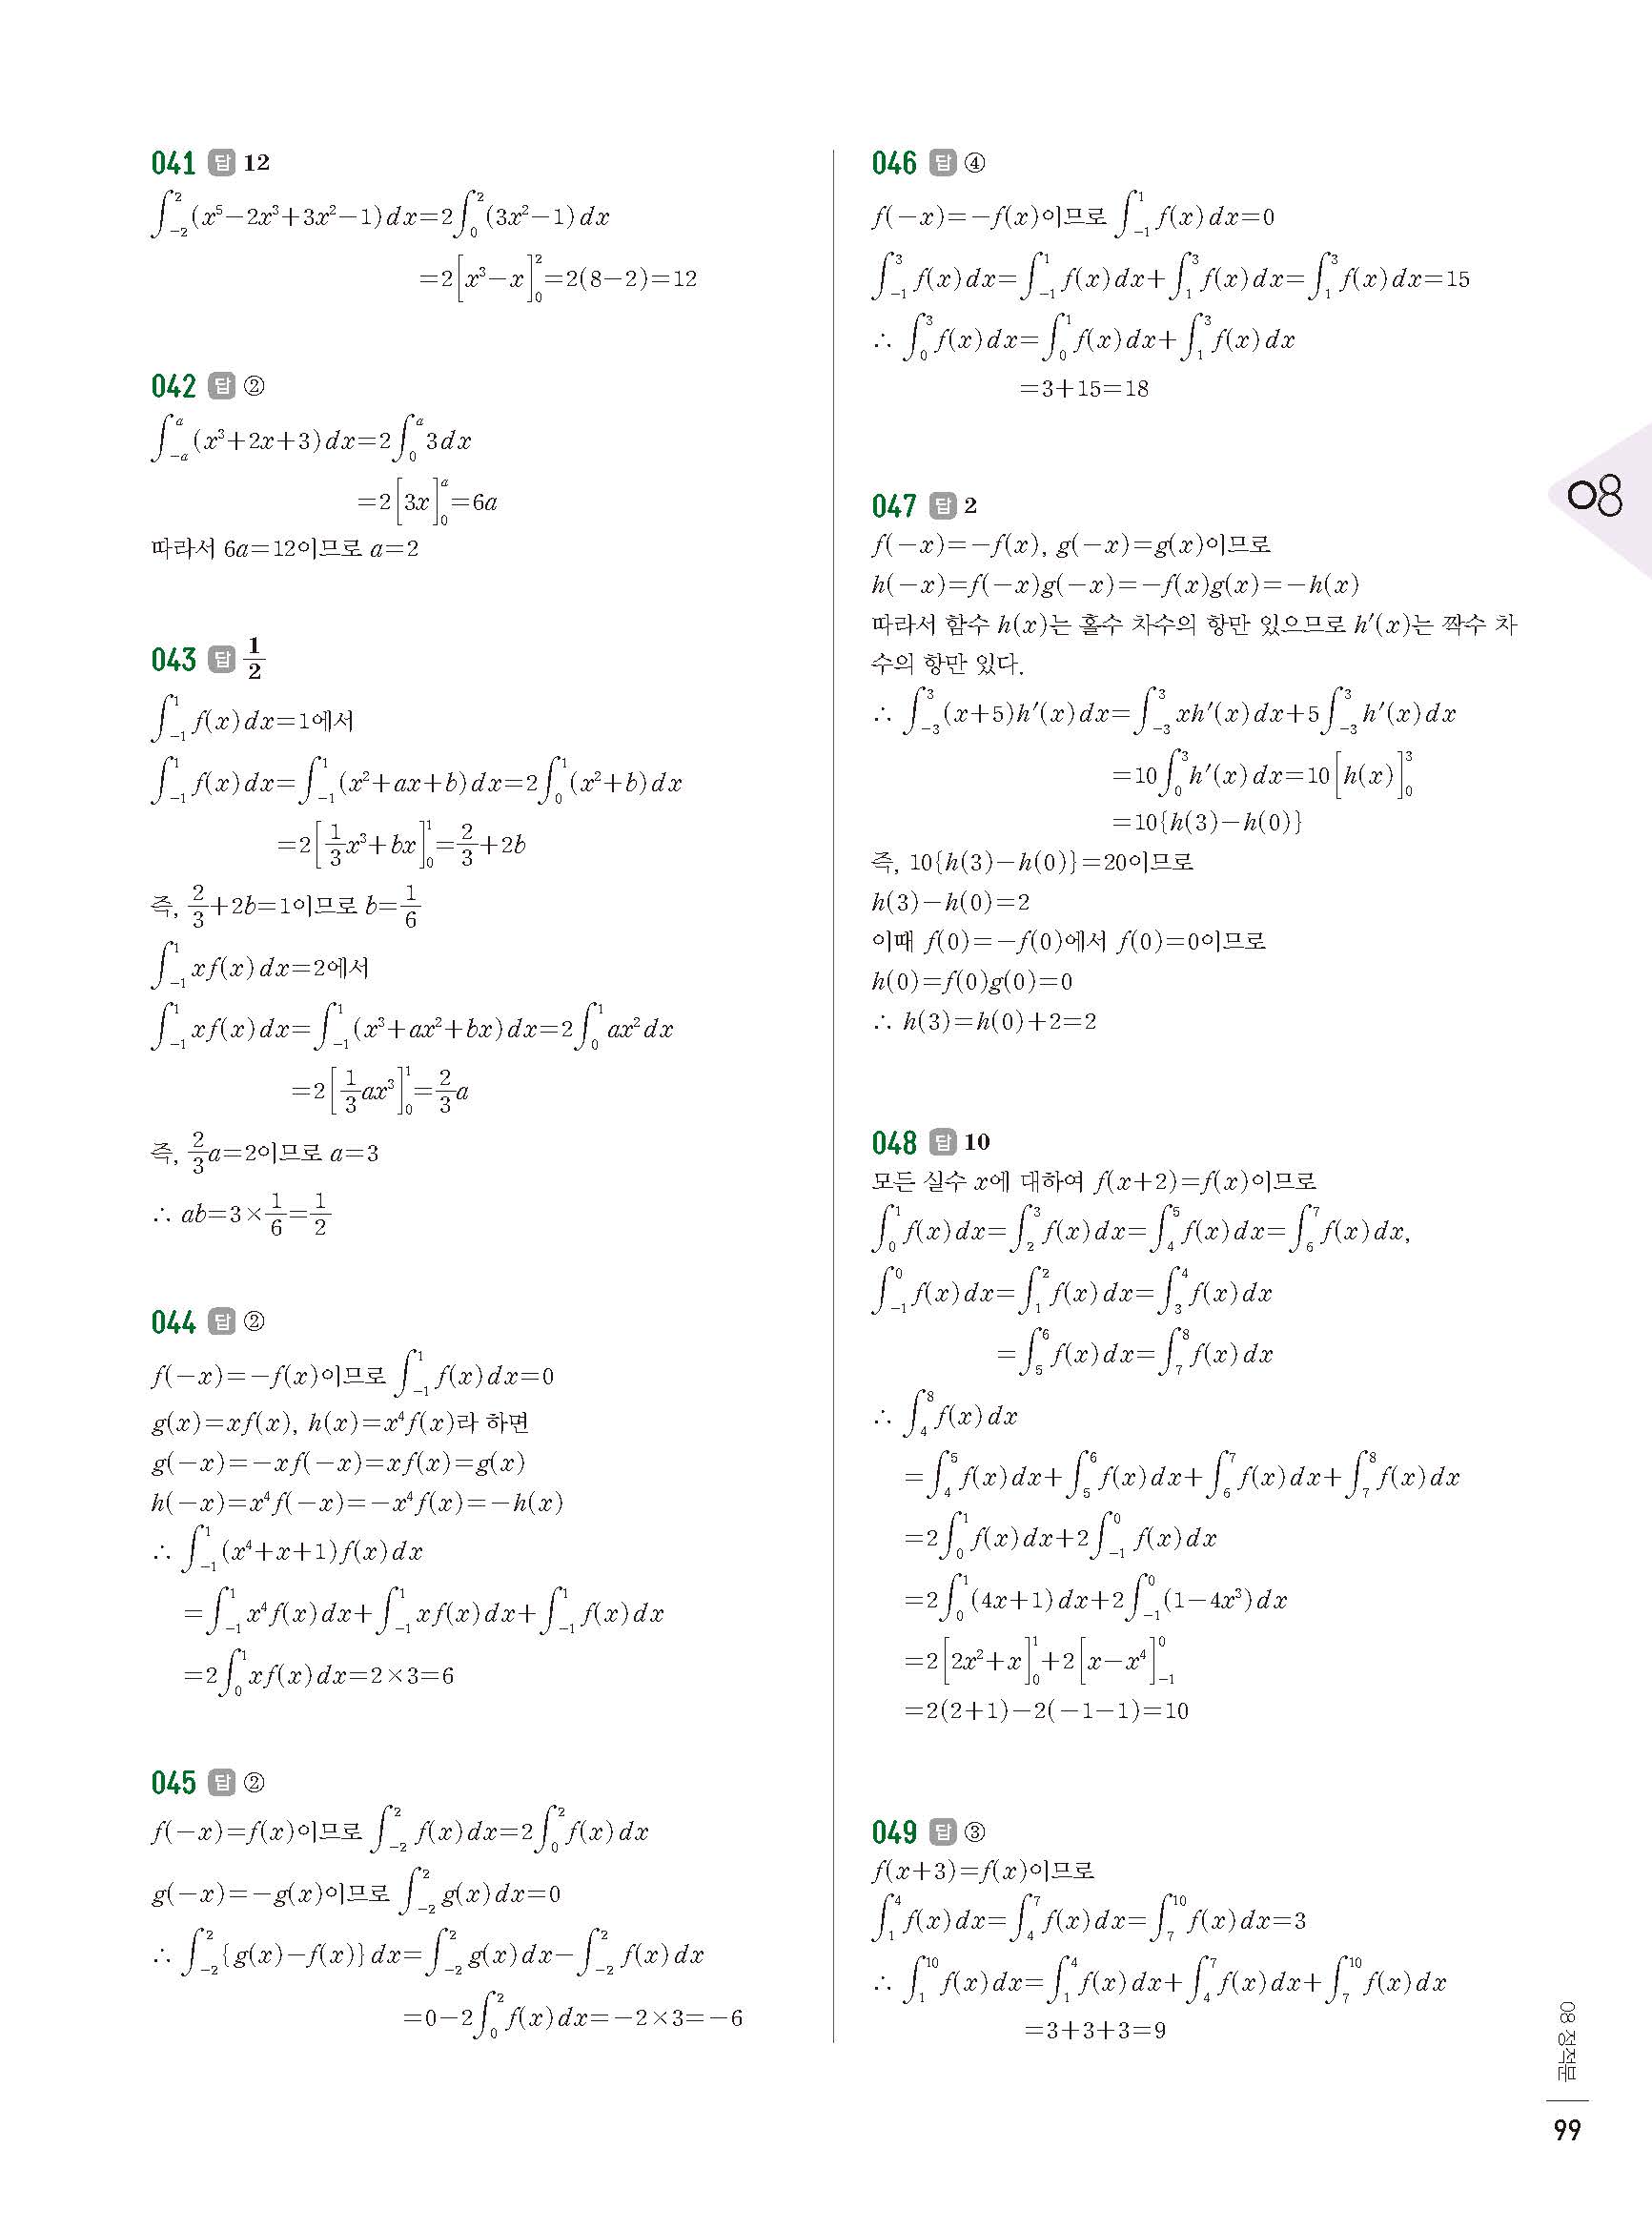 041 답 12
∫_{-2}^{2}(x⁵-2x³+3x²-1)dx=2∫_{0}^{2}(3x²-1)dx
=2[x³-x]_{0}^{2}=2(8-2)=12
042 답 ②
∫_{-a}^{a}(x³+2x+3)dx=2∫_{0}^{a}3dx
=2[3x]_{0}^{a}=6a
따라서 6a=12이므로 a=2
043 답 1/2
∫_{-1}^{1}f(x)dx=1에서
∫_{-1}^{1}f(x)dx=∫_{-1}^{1}(x²+ax+b)dx=2∫_{0}^{1}(x²+b)dx
=2[1/3x³+bx]_{0}^{1}=2/3+2b
즉, 2/3+2b=1이므로 b=1/6
∫_{-1}^{1}xf(x)dx=2에서
∫_{-1}^{1}xf(x)dx=∫_{-1}^{1}(x³+ax²+bx)dx=2∫_{0}^{1}ax²dx
=2[1/3ax³]_{0}^{1}=2/3a
즉, 2/3a=2이므로 a=3
∴ ab=3×1/6=1/2
044 답 ②
f(-x)=-f(x)이므로 ∫_{-1}^{1}f(x)dx=0
g(x)=xf(x), h(x)=x⁴f(x)라 하면
g(-x)=-xf(-x)=xf(x)=g(x)
h(-x)=x⁴f(-x)=-x⁴f(x)=-h(x)
∴ ∫_{-1}^{1}(x⁴+x+1)f(x)dx
=∫_{-1}^{1}x⁴f(x)dx+∫_{-1}^{1}xf(x)dx+∫_{-1}^{1}f(x)dx
=2∫_{0}^{1}xf(x)dx=2×3=6
045 답 ②
f(-x)=f(x)이므로 ∫_{-2}^{2}f(x)dx=2∫_{0}^{2}f(x)dx
g(-x)=-g(x)이므로 ∫_{-2}^{2}g(x)dx=0
∴ ∫_{-2}^{2}{g(x)-f(x)}dx=∫_{-2}^{2}g(x)dx-∫_{-2}^{2}f(x)dx
=0-2∫_{0}^{2}f(x)dx=-2×3=-6
046 답 ④
f(-x)=-f(x)이므로 ∫_{-1}^{1}f(x)dx=0
∫_{-1}^{3}f(x)dx=∫_{-1}^{1}f(x)dx+∫_{1}^{3}f(x)dx=∫_{1}^{3}f(x)dx=15
∴ ∫_{0}^{3}f(x)dx=∫_{0}^{1}f(x)dx+∫_{1}^{3}f(x)dx
=3+15=18
047 답 2
f(-x)=-f(x), g(-x)=g(x)이므로
h(-x)=f(-x)g(-x)=-f(x)g(x)=-h(x)
따라서 함수 h(x)는 홀수 차수의 항만 있으므로 h′(x)는 짝수 차
수의 항만 있다.
∴ ∫_{-3}^{3}(x+5)h′(x)dx=∫_{-3}^{3}xh′(x)dx+5∫_{-3}^{3}h′(x)dx
=10∫_{0}^{3}h′(x)dx=10[h(x)]_{0}^{3}
=10{h(3)-h(0)}
즉, 10{h(3)-h(0)}=20이므로
h(3)-h(0)=2
이때 f(0)=-f(0)에서 f(0)=0이므로
h(0)=f(0)g(0)=0
∴ h(3)=h(0)+2=2
048 답 10
모든 실수 x에 대하여 f(x+2)=f(x)이므로
∫_{0}^{1}f(x)dx=∫_{2}^{3}f(x)dx=∫_{4}^{5}f(x)dx=∫_{6}^{7}f(x)dx,
∫_{-1}^{0}f(x)dx=∫_{1}^{2}f(x)dx=∫_{3}^{4}f(x)dx
=∫_{5}^{6}f(x)dx=∫_{7}^{8}f(x)dx
∴ ∫_{4}^{8}f(x)dx
=∫_{4}^{5}f(x)dx+∫_{5}^{6}f(x)dx+∫_{6}^{7}f(x)dx+∫_{7}^{8}f(x)dx
=2∫_{0}^{1}f(x)dx+2∫_{-1}^{0}f(x)dx
=2∫_{0}^{1}(4x+1)dx+2∫_{-1}^{0}(1-4x³)dx
=2[2x²+x]_{0}^{1}+2[x-x⁴]_{-1}^{0}
=2(2+1)-2(-1-1)=10
049 답 ③
f(x+3)=f(x)이므로
∫_{1}^{4}f(x)dx=∫_{4}^{7}f(x)dx=∫_{7}^{10}f(x)dx=3
∴ ∫_{1}^{10}f(x)dx=∫_{1}^{4}f(x)dx+∫_{4}^{7}f(x)dx+∫_{7}^{10}f(x)dx
=3+3+3=9
08
08 정적분
99